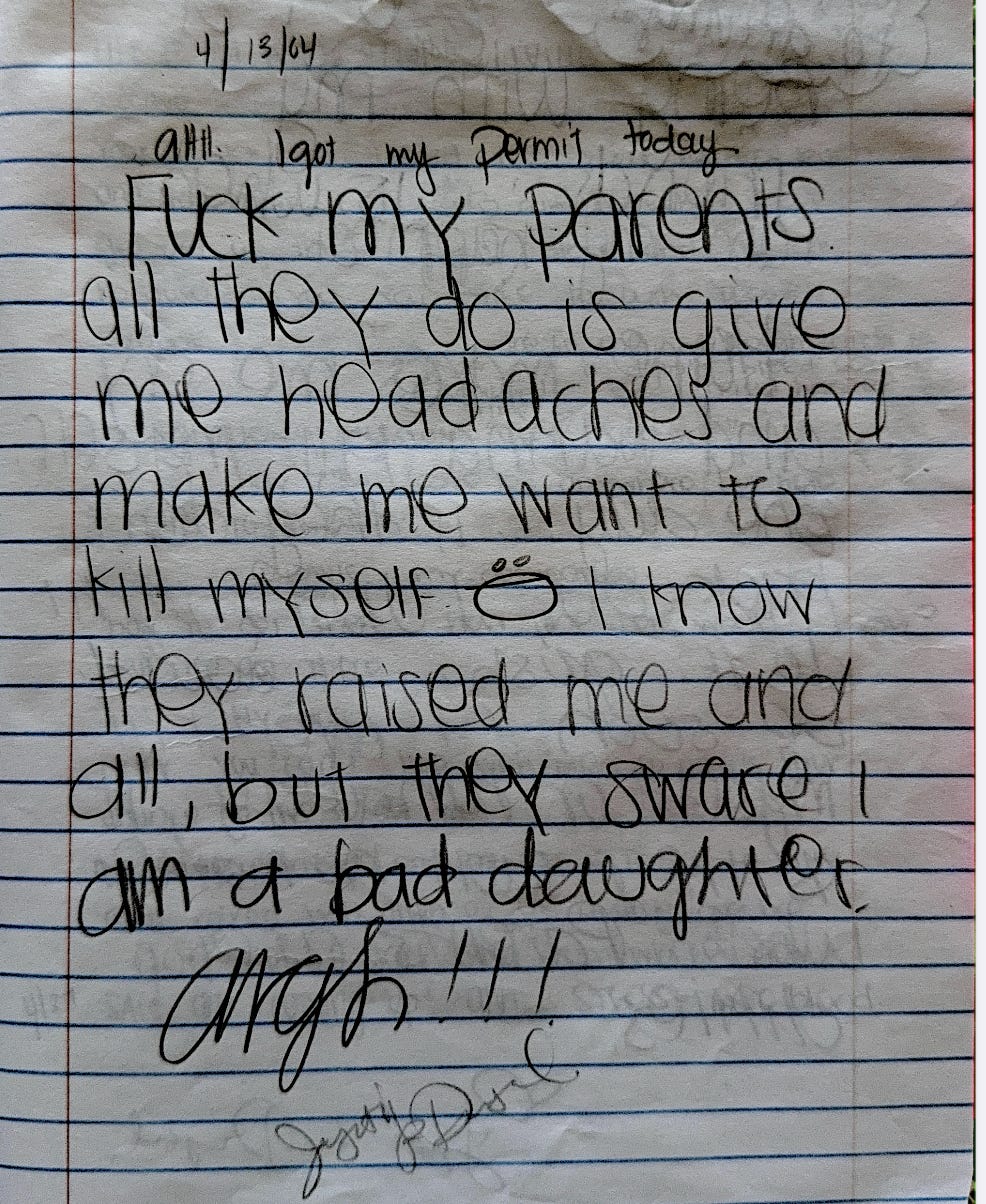 4/13/04
aHH. I got my Permit today
Fuck my parents.
all they do is give
me headaches and
make me want to
kill myself. I know
they raised me and
all, but they sware I
am a bad daughter.
Argh!!!